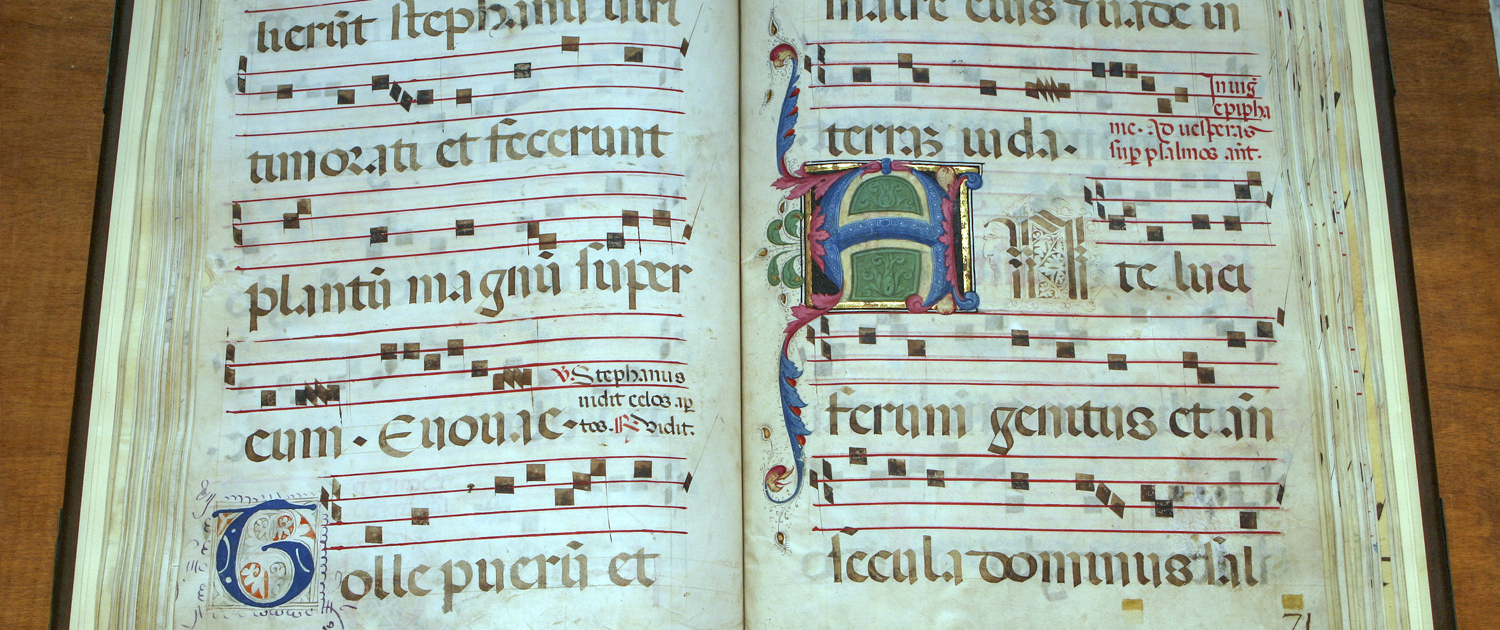 lierūt stephanū uiri
timorati et fecerunt
plantū magnū super
eum · Euouae ·
℣. Stephanus
uidit celos ap
tos. ℟ Vidit.
Tolle puerū et
matre eius ⁊ uade in
terraz iuda ·
In uiḡ
epipha
nie · Ad uesperas
sup̄ psalmos ant̄ ·
Ante luci
ferum genitus et an̄
secula dominus sal
71